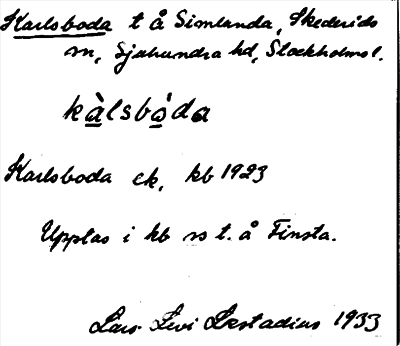 Karlsboda t å Simlunda, Skederids
sn, Sjuhundra hd, Stockholms l.
kàlsbòda
Karlsboda ek, kb 1923
Upptas i kb ss t. å Finsta.
Lars Levi Læstadius 1933